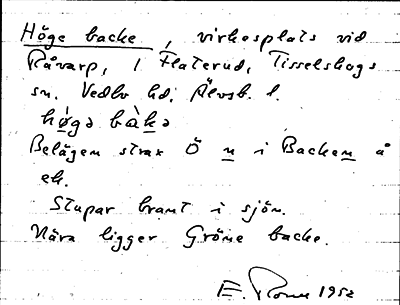 Höge backe, virkesplats vid
Råvarp, i Flaterud, Tisselskogs
sn. Vedbo hd. Älvsb. l.
hø̀gə bàkə
Belägen strax Ö n i Backen å
ek.
Stupar brant i sjön.
Nära ligger Gröne backe.
E. 1952